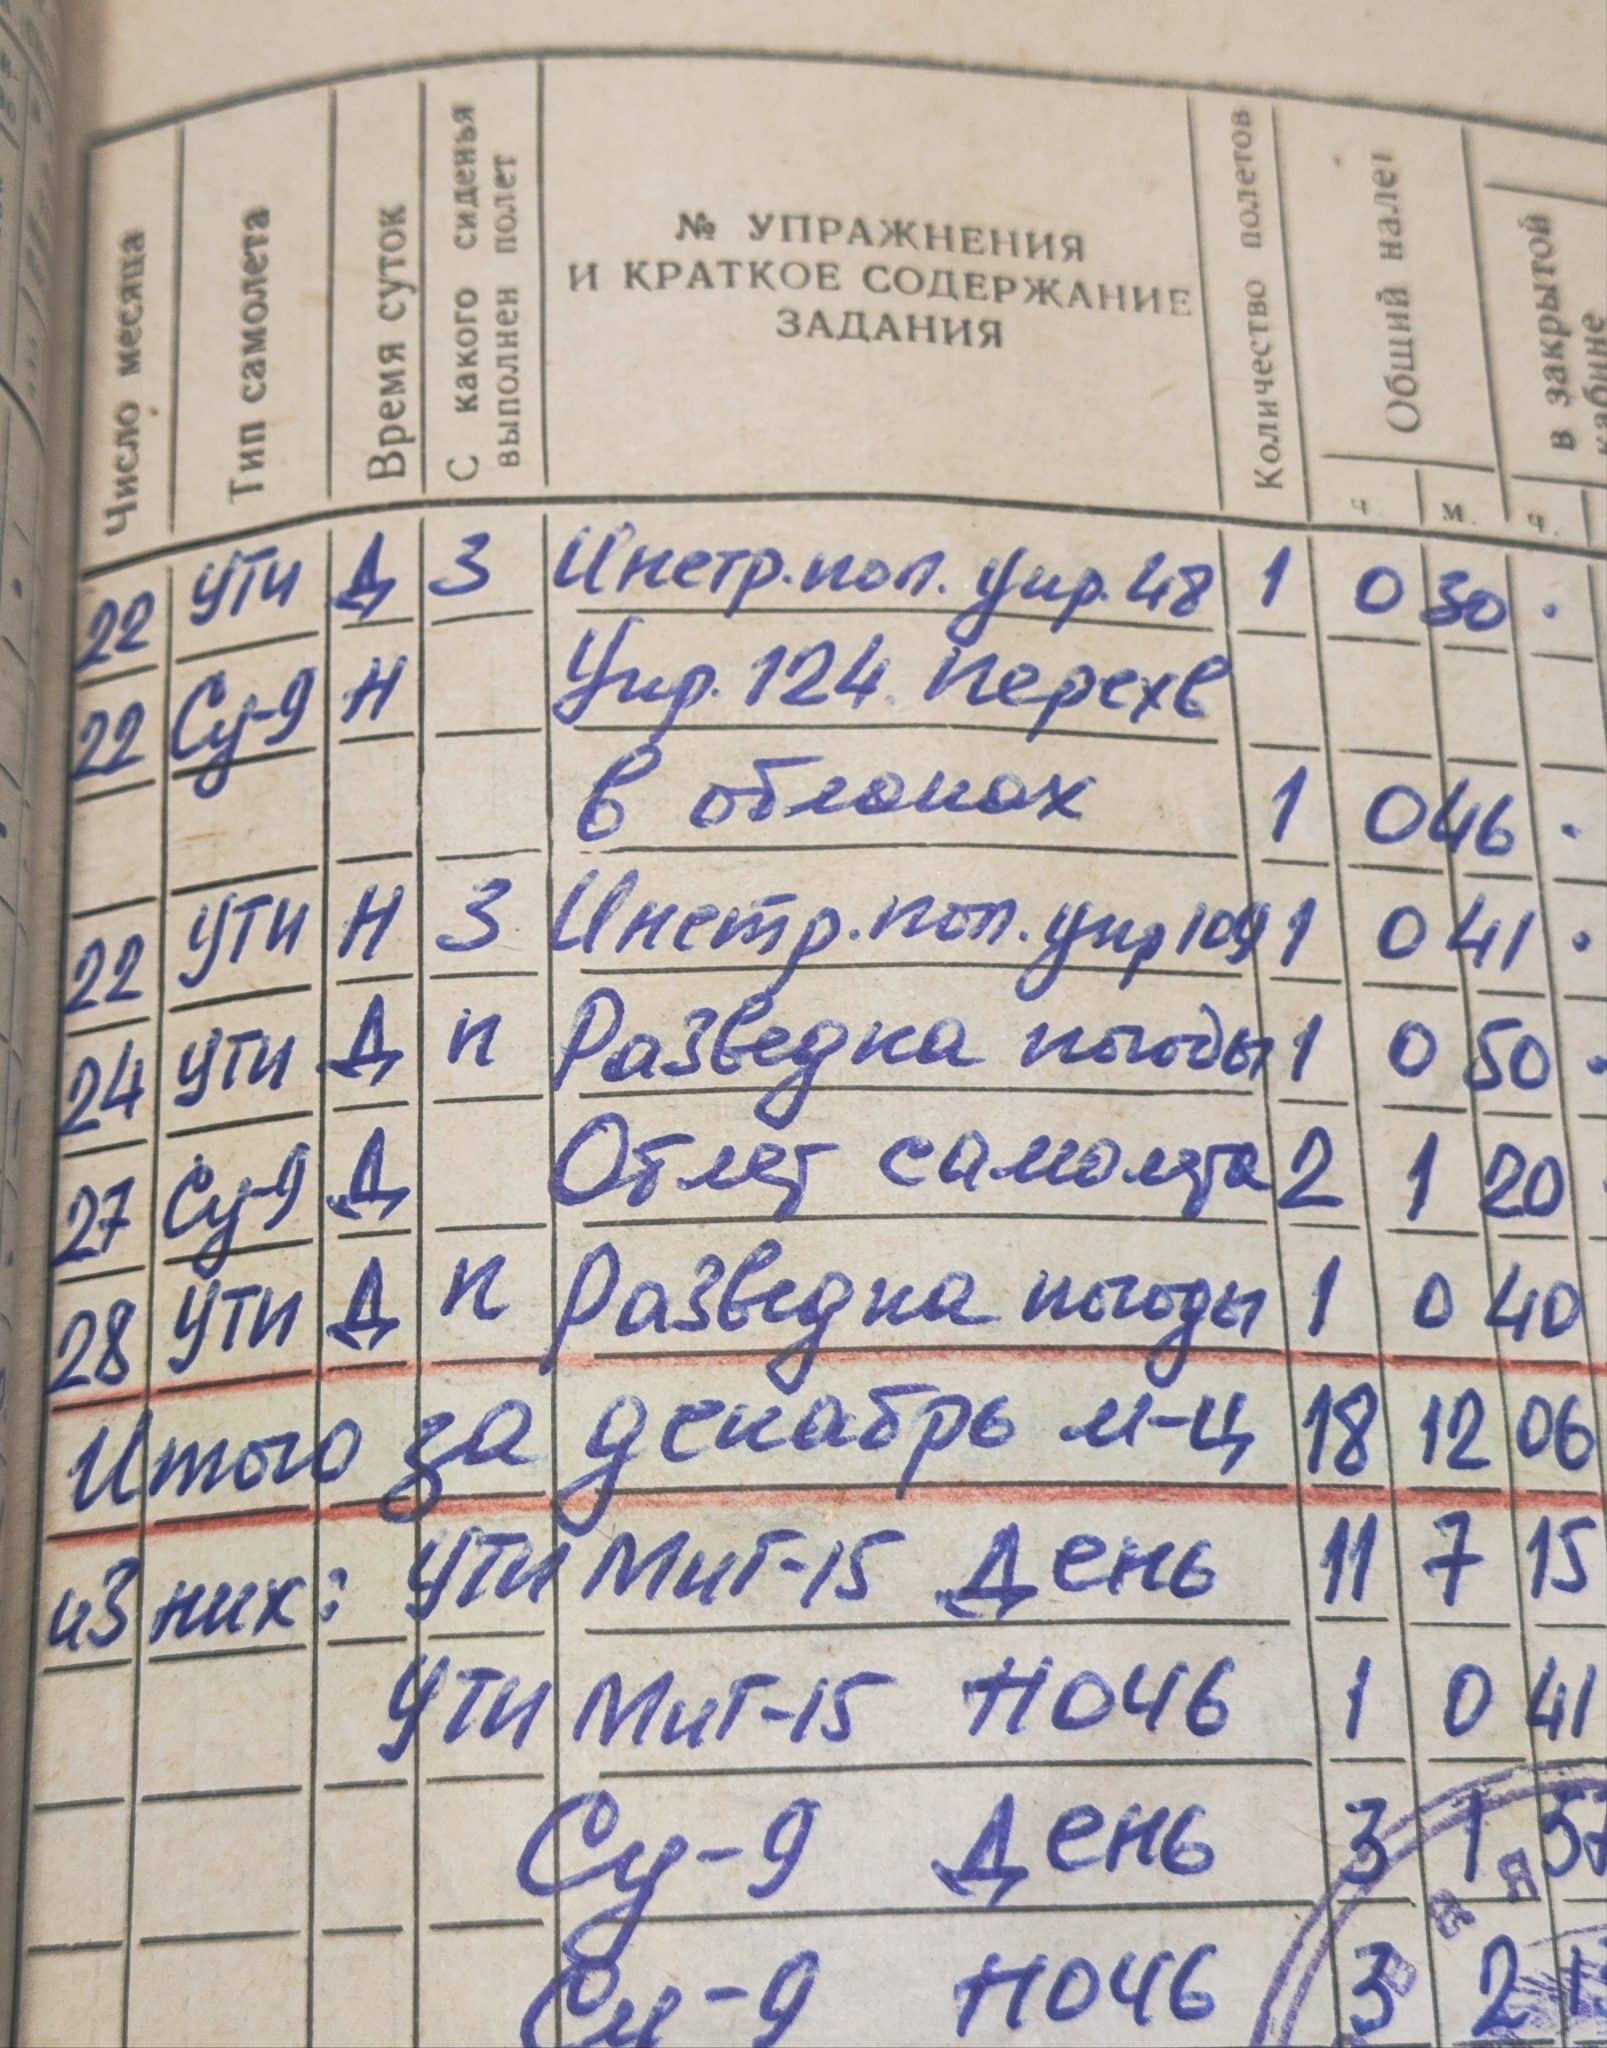 Число месяца
Тип самолета
Время суток
С какого сиденья выполнен полет
№ УПРАЖНЕНИЯ
И КРАТКОЕ СОДЕРЖАНИЕ
ЗАДАНИЯ
Количество полетов
Общий налет
в закрытой кабине
ч. м. ч.
22 УТИ Д З Инстр. пол. Упр. 48 1 0 30
22 Су-9 Н Упр. 124 Перехв
в облаках 1 0 46
22 УТИ Н З Инстр. пол. упр 109 1 0 41
24 УТИ Д П Разведка погоды 1 0 50
27 Су-9 Д Облет самолета 2 1 20
28 УТИ Д П Разведка погоды 1 0 40
Итого за декабрь м-ц 18 12 06
из них: УТИ МиГ-15 День 11 7 15
УТИ МиГ-15 Ночь 1 0 41
Су-9 День 3 1 57
Су-9 Ночь 3 2 13